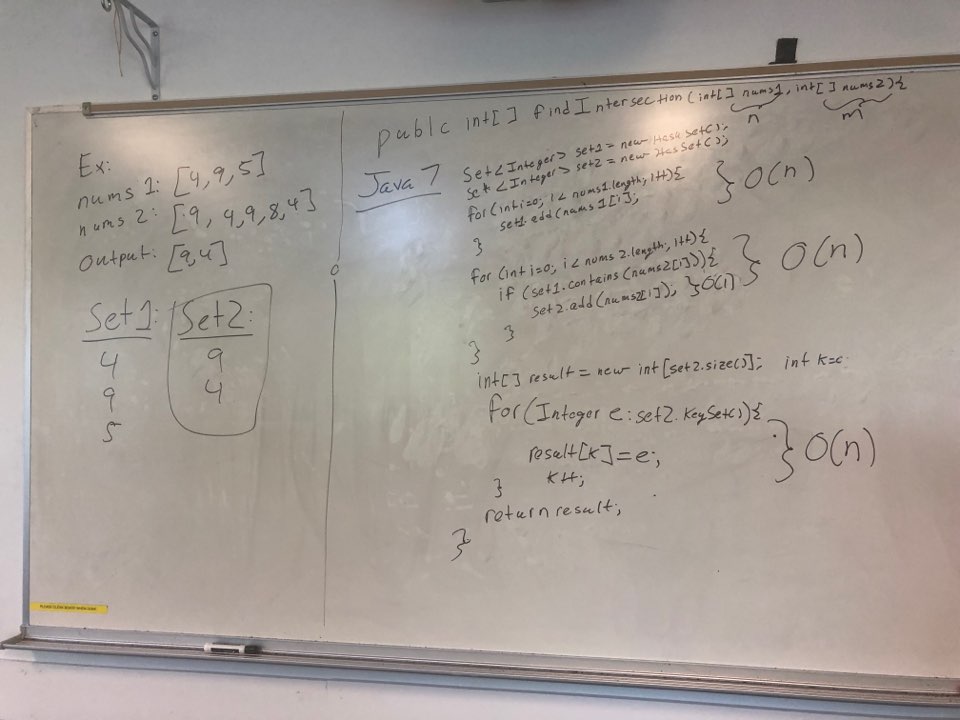 Ex:
nums 1: [4,9,5]
nums 2: [9, 4,9,8,4]
output: [9,4]
Set1: Set2:
4 9
9 4
5
publc int[] findIntersection (int[] nums1, int[] nums2){
n m
Java 7
Set<Integer> set1 = new HashSet();
Set <Integer> set2 = new HasSet();
for(int i=0; i < nums1.length; i++){
set1.add(nums1[i];
}
} O(n)
for (int i=0; i < nums 2.length; i++){
if (set1.contains (nums2[i])){
set2.add(nums2[i]); }O(1)
}
}
} O(n)
int[] result = new int[set2.size()]; int k=
for(Integer e: set2.KeySet()){
result[k]=e;
k++;
}
} O(n)
return result;
}
PLEASE CLEAN BOARD WHEN DONE